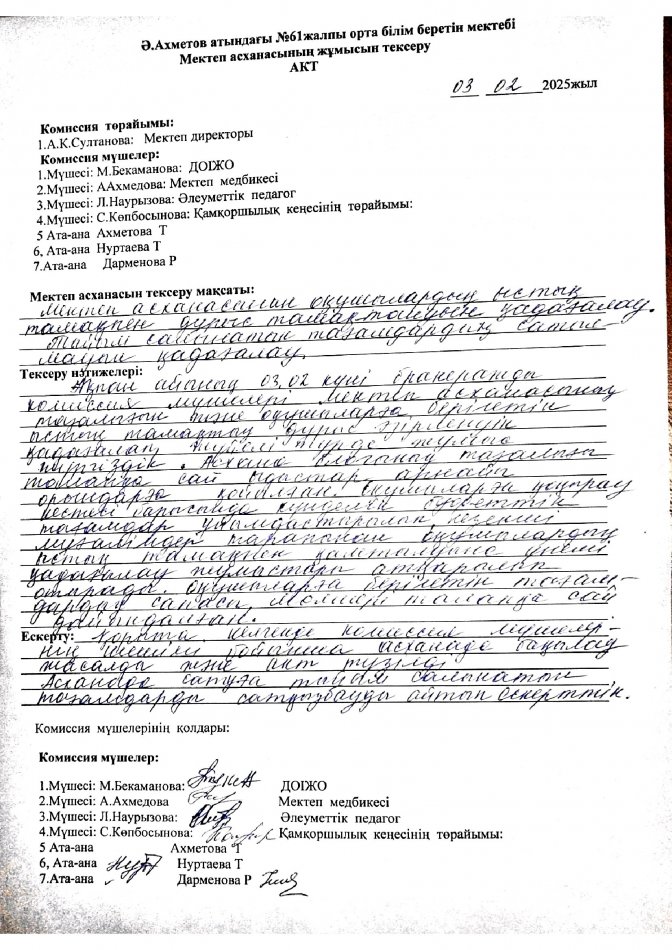 Ә.Ахметов атындағы №61жалпы орта білім беретін мектебі
Мектеп асханасының жұмысын тексеру
АКТ
03 02 2025жыл
Комиссия төрайымы:
1.А.К.Султанова: Мектеп директоры
Комиссия мүшелер:
1.Мүшесі: М.Бекаманова: ДОІЖО
2.Мүшесі: ААхмедова: Мектеп медбикесі
3.Мүшесі: Л.Наурызова: Әлеуметтік педагог
4.Мүшесі: С.Көпбосынова: Қамқоршылық кеңесінің төрайымы:
5 Ата-ана Ахметова Т
6, Ата-ана Нуртаева Т
7.Ата-ана Дарменова Р
Мектеп асханасын тексеру мақсаты:
Мектеп асханасынан оқушылардың ыстық
тамақпен дұрыс тамақтануын қадағалау.
Тыйым салынатын тағамдардың сатыл-
мауын қадағалау.
Тексеру нәтижелері:
Ақпан айының 03.02 күні бракераждық
комиссия мүшелері мектеп асханасының
тазалығын және оқушыларға берілетін
ыстық тамақтың дұрыс әзірленуін
қадағалап жүйелі түрде жұмыс
жүргіздік. Асхана блогының тазалығы
талапқа сай ыдыстар арнайы
орындарға қойылған. Оқушыларға қоңырау
кестесі арасында күнделік
тағамдар ұйымдастырылып кезекші
мұғалімдер тарапынан оқушылардың
ыстық тамақпен қамтылуына үнемі
қадағалау жұмыстары атқарылып
отырады. Оқушыларға берілетін тағам-
дардың сапасы, мөлшері талапқа сай
дайындалған.
Ескерту: Қорыта келгенде комиссия мүшелері-
нің шешімі бойынша асханада бақылау
жасалды және акт түзілді
Асханада сатуға тыйым салынатын
тағамдарды сатқызбауды айтып ескерттік.
Комиссия мүшелерінің қолдары:
Комиссия мүшелер:
1.Мүшесі: М.Бекаманова: ДОІЖО
2.Мүшесі: А.Ахмедова Мектеп медбикесі
3.Мүшесі: Л.Наурызова: Әлеуметтік педагог
4.Мүшесі: С.Көпбосынова: Қамқоршылық кеңесінің төрайымы:
5 Ата-ана Ахметова Т
6, Ата-ана Нуртаева Т
7.Ата-ана Дарменова Р